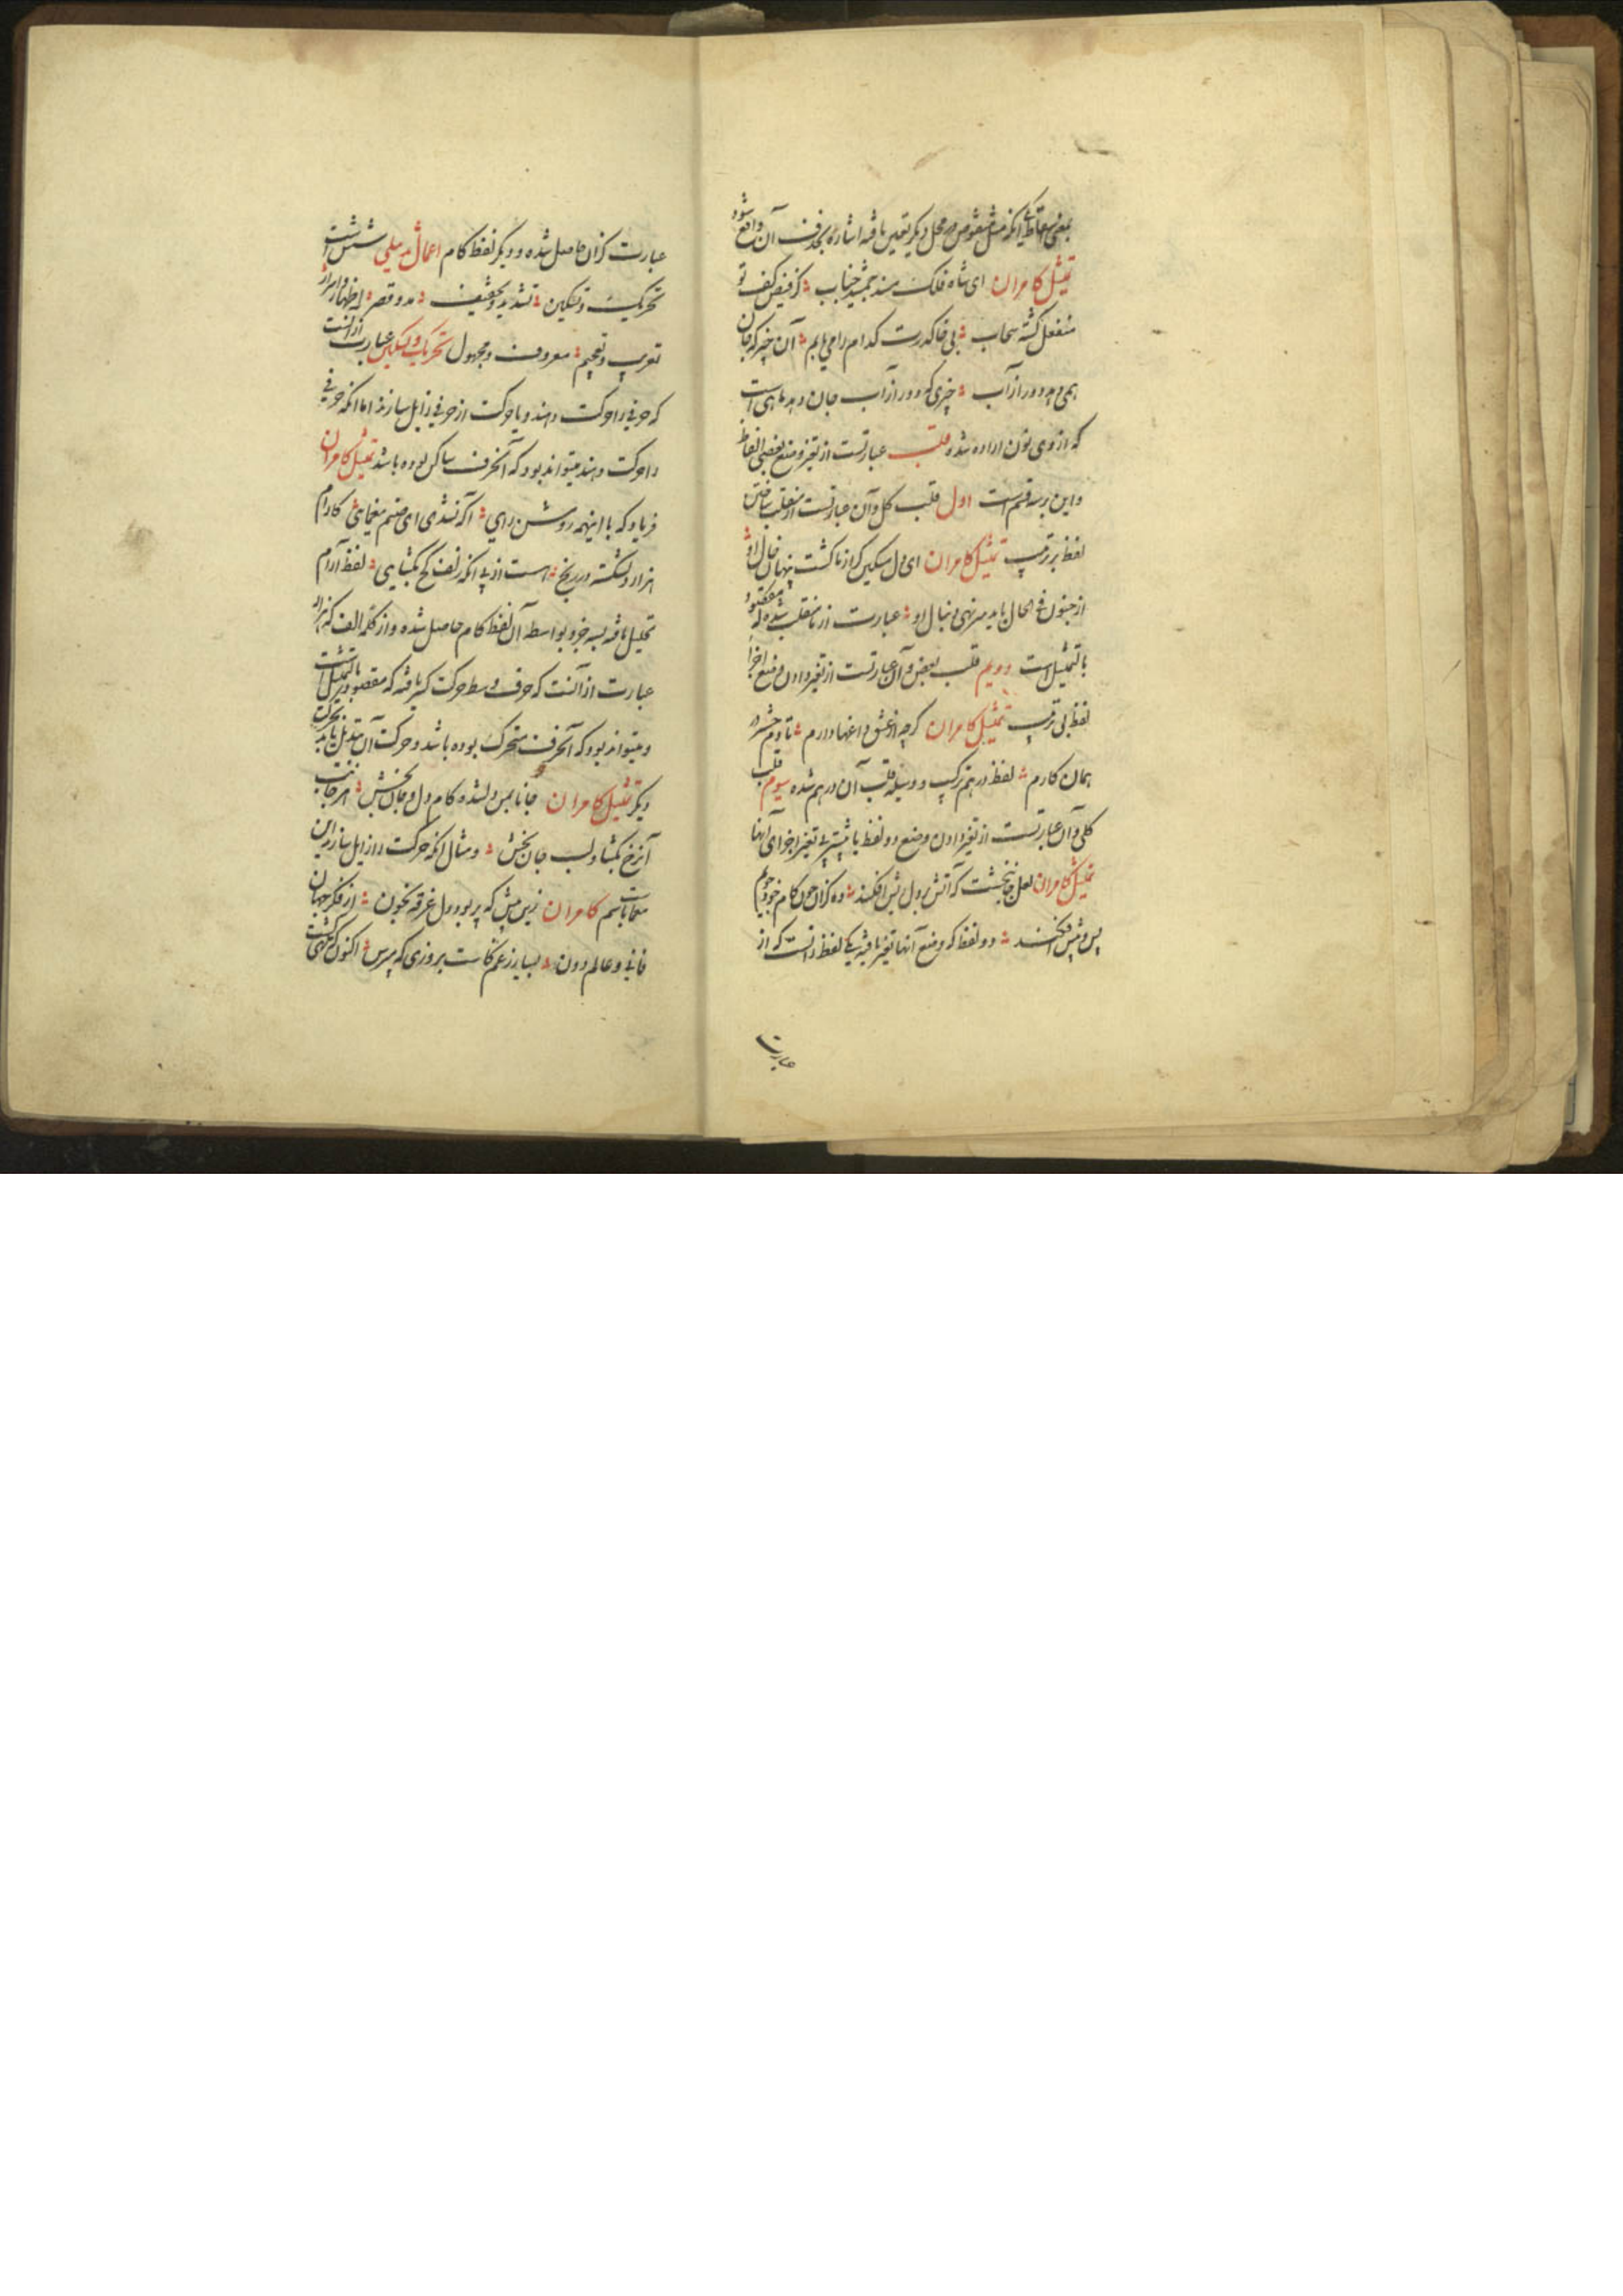 بمعنی اسقاطی آنکه مثل منقوص در محل دیگر تعین یافته اشاره بحذف آن واقع شود
تمثیل کامران ای شاه فلک مسند جمشید جناب کز فیض کف تو
منفعل گشته سحاب بی خاک درت کدام را می یابم آن چیز که جان
همی دهد دور از آب چیزی که دور از آب جان دهد ماهی است
که از وی نون اراده شده قلب عبارتست از تغیر وضع بعضی الفاظ
و این بر سه قسم است اول قلب کل و آن عبارتست از منقلب ساختن
لفظ بر ترتیب تمثیل کامران ای دل مسکین که از ما گشت پنهان خال او
از جنون فی الحال باید سر نهی دنبال او عبارت از ما منقلب شده که مقصود
بالتمثیل است دویم قلب بعض و آن عبارتست از تغیر دادن وضع اجزا
لفظ بی ترتیب تمثیل کامران گرچه از عشق داغها دارم تا دم حشر در
همان کارم لفظ در هم ترکیب و وسیله قلب آن در هم شده سیوم قلب
کلی و آن عبارتست از تغیر دادن وضع دو لفظ یا بیشتر بی تغیر اجزای آنها
تمثیل کامران لعل جانبخشت که آتش در دل ریش افکند ده کزان چون کام خود جویم
پس و پیش افکند دو لفظ که وضع آنها تغیر یافته یکی لفظ دانست که از
عبارت
عبارت کزان حاصل شده و دیگر لفظ کام اعمال تذییلی شش است
تحریک و تسکین تشدید و تخفیف مد و قصر اظهار و اسرار
تعریب و تعجیم معروف و مجهول تحریک و تسکین عبارت از آنست
که حرفی را حرکت دهند و یا حرکت از حرفی زایل سازند اما آنکه حرفی
را حرکت دهند میتواند بود که آنحرف ساکن بوده باشد تمثیل کامران
فریاد که با اینهمه روشن رایی آگه نشدی ای صنم یغمایی کارام
هزار دلشکسته در رنج است از پی آنکه زلف کج بگشایی لفظ آرام
تحلیل یافته بسه جزو بواسطه آن لفظ کام حاصل شده و از کلمه الف که هزار
عبارت از آنست که حرف وسط حرکت کسر یافته که مقصود بالتمثیل است
و میتواند بود که آنحرف متحرک بوده باشد و حرکت آن متبدل یابد بحرکت
دیگر تمثیل کامران جانا بمن دلشده کام دل و جان بخش از جانب
آن رخ بگشا و لب جان بخش و مثال آنکه حرکت را زایل سازند این
معماباسم کامران زین پیش که پر بود دل غرقه بخون از فکر جهان
فانی و عالم دون بسیار ز غم کاست بروزی که مپرس اکنون که گذشت